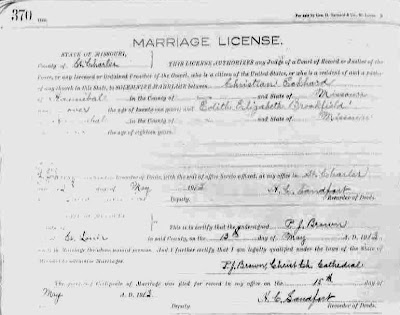 370
MARRIAGE LICENSE.
STATE OF MISSOURI,
County of St Charles
THIS LICENSE AUTHORIZES any Judge of a Court of Record or Justice of the
Peace, or any licensed or Ordained Preacher of the Gospel, who is a citizen of the United States, or who is a resident of and a pastor
of any church in this State, to SOLEMNIZE MARRIAGE between Christian Eckhard
of Hannibal in the County of and State of Missouri
who is over the age of twenty-one years; and Edith Elizabeth Brookfield
of in the County of and State of Missouri
who is the age of eighteen years.
Recorder of Deeds, with the seal of office hereto affixed, at my office in St Charles
day of May 1913 H. C. Sandfort
Deputy. Recorder of Deeds.
This is to certify that the undersigned P. J. Brown
St. Louis in said County, on the 13th day of May A. D. 1913
unite in Marriage the above named persons, And I further certify that I am legally qualified under the laws of the State of
Missouri to solemnize Marriages.
P. J. Brown, Christ Ch. Cathedral
The foregoing Certificate of Marriage was filed for record in my office on the 15th day of
May A. D. 1913. H. C. Sandfort
Deputy. Recorder of Deeds.